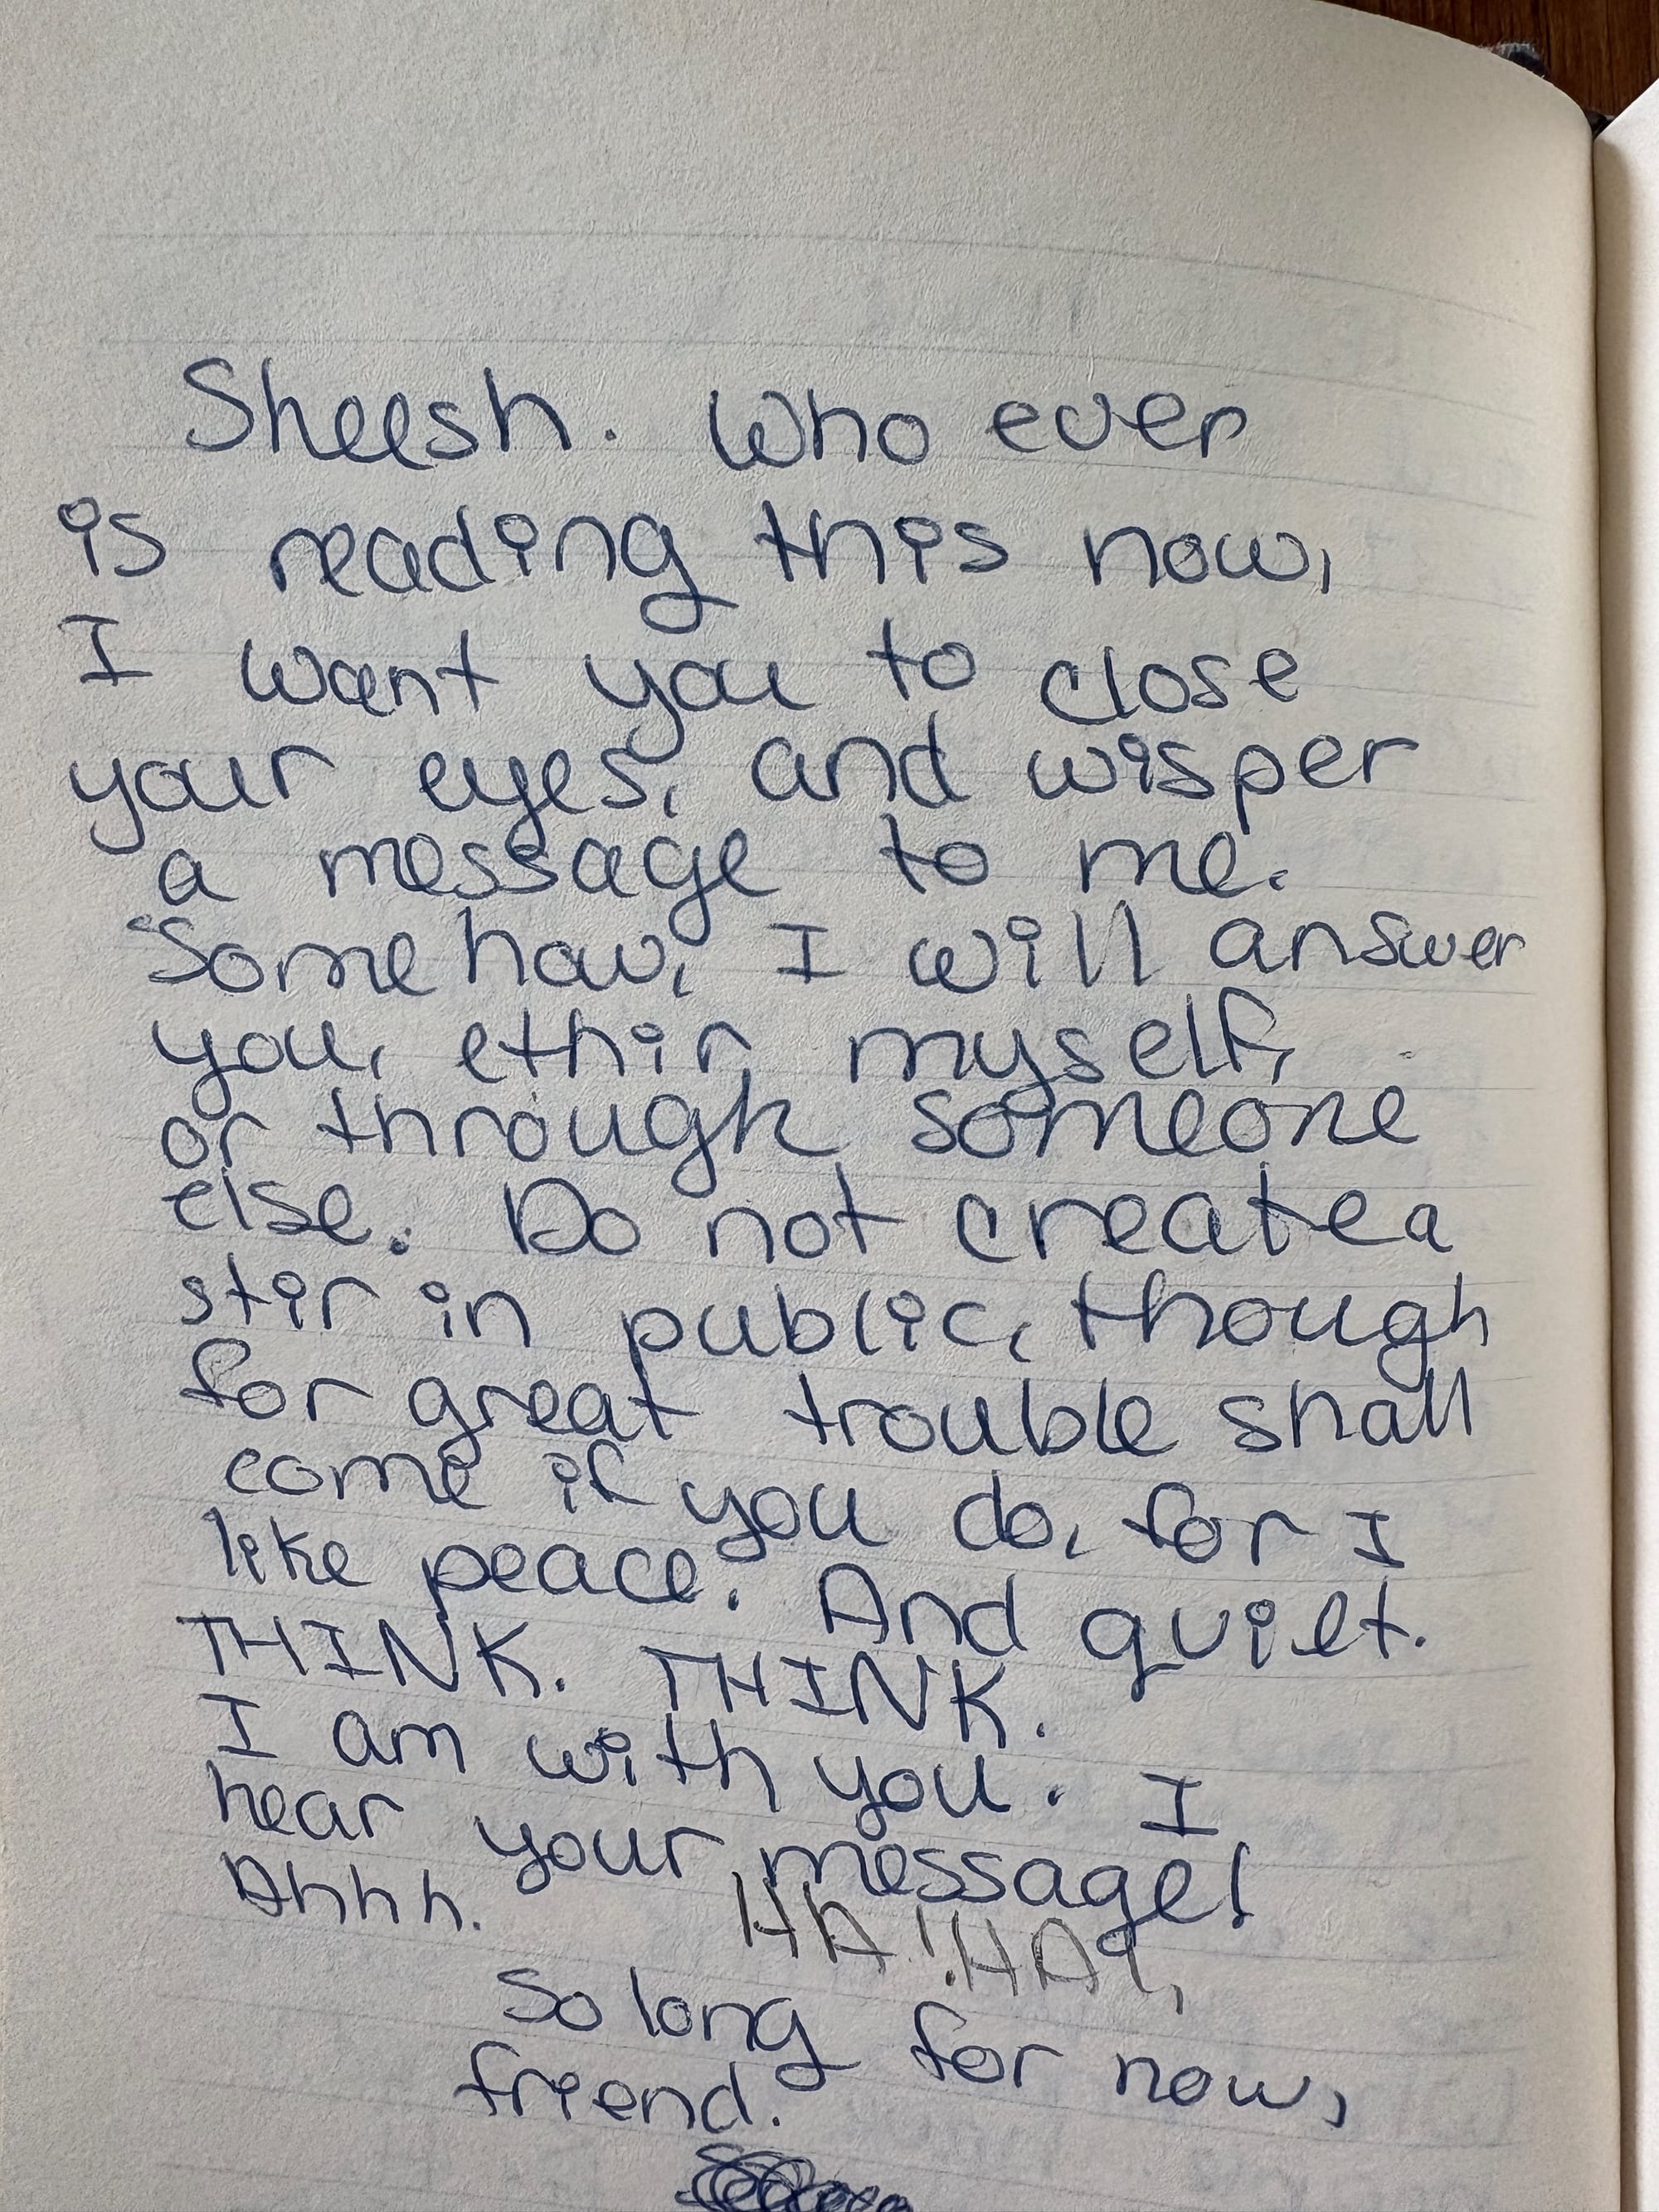 Sheesh. Who ever
is reading this now,
I want you to close
your eyes, and wisper
a message to me.
Some how, I will answer
you, ethir myself,
or through someone
else. Do not create a
stir in public, though
for great trouble shall
come if you do, for I
like peace. And quiet.
THINK. THINK.
I am with you. I
hear your message!
Ahhh. HA! HA!
So long for now,
friend.